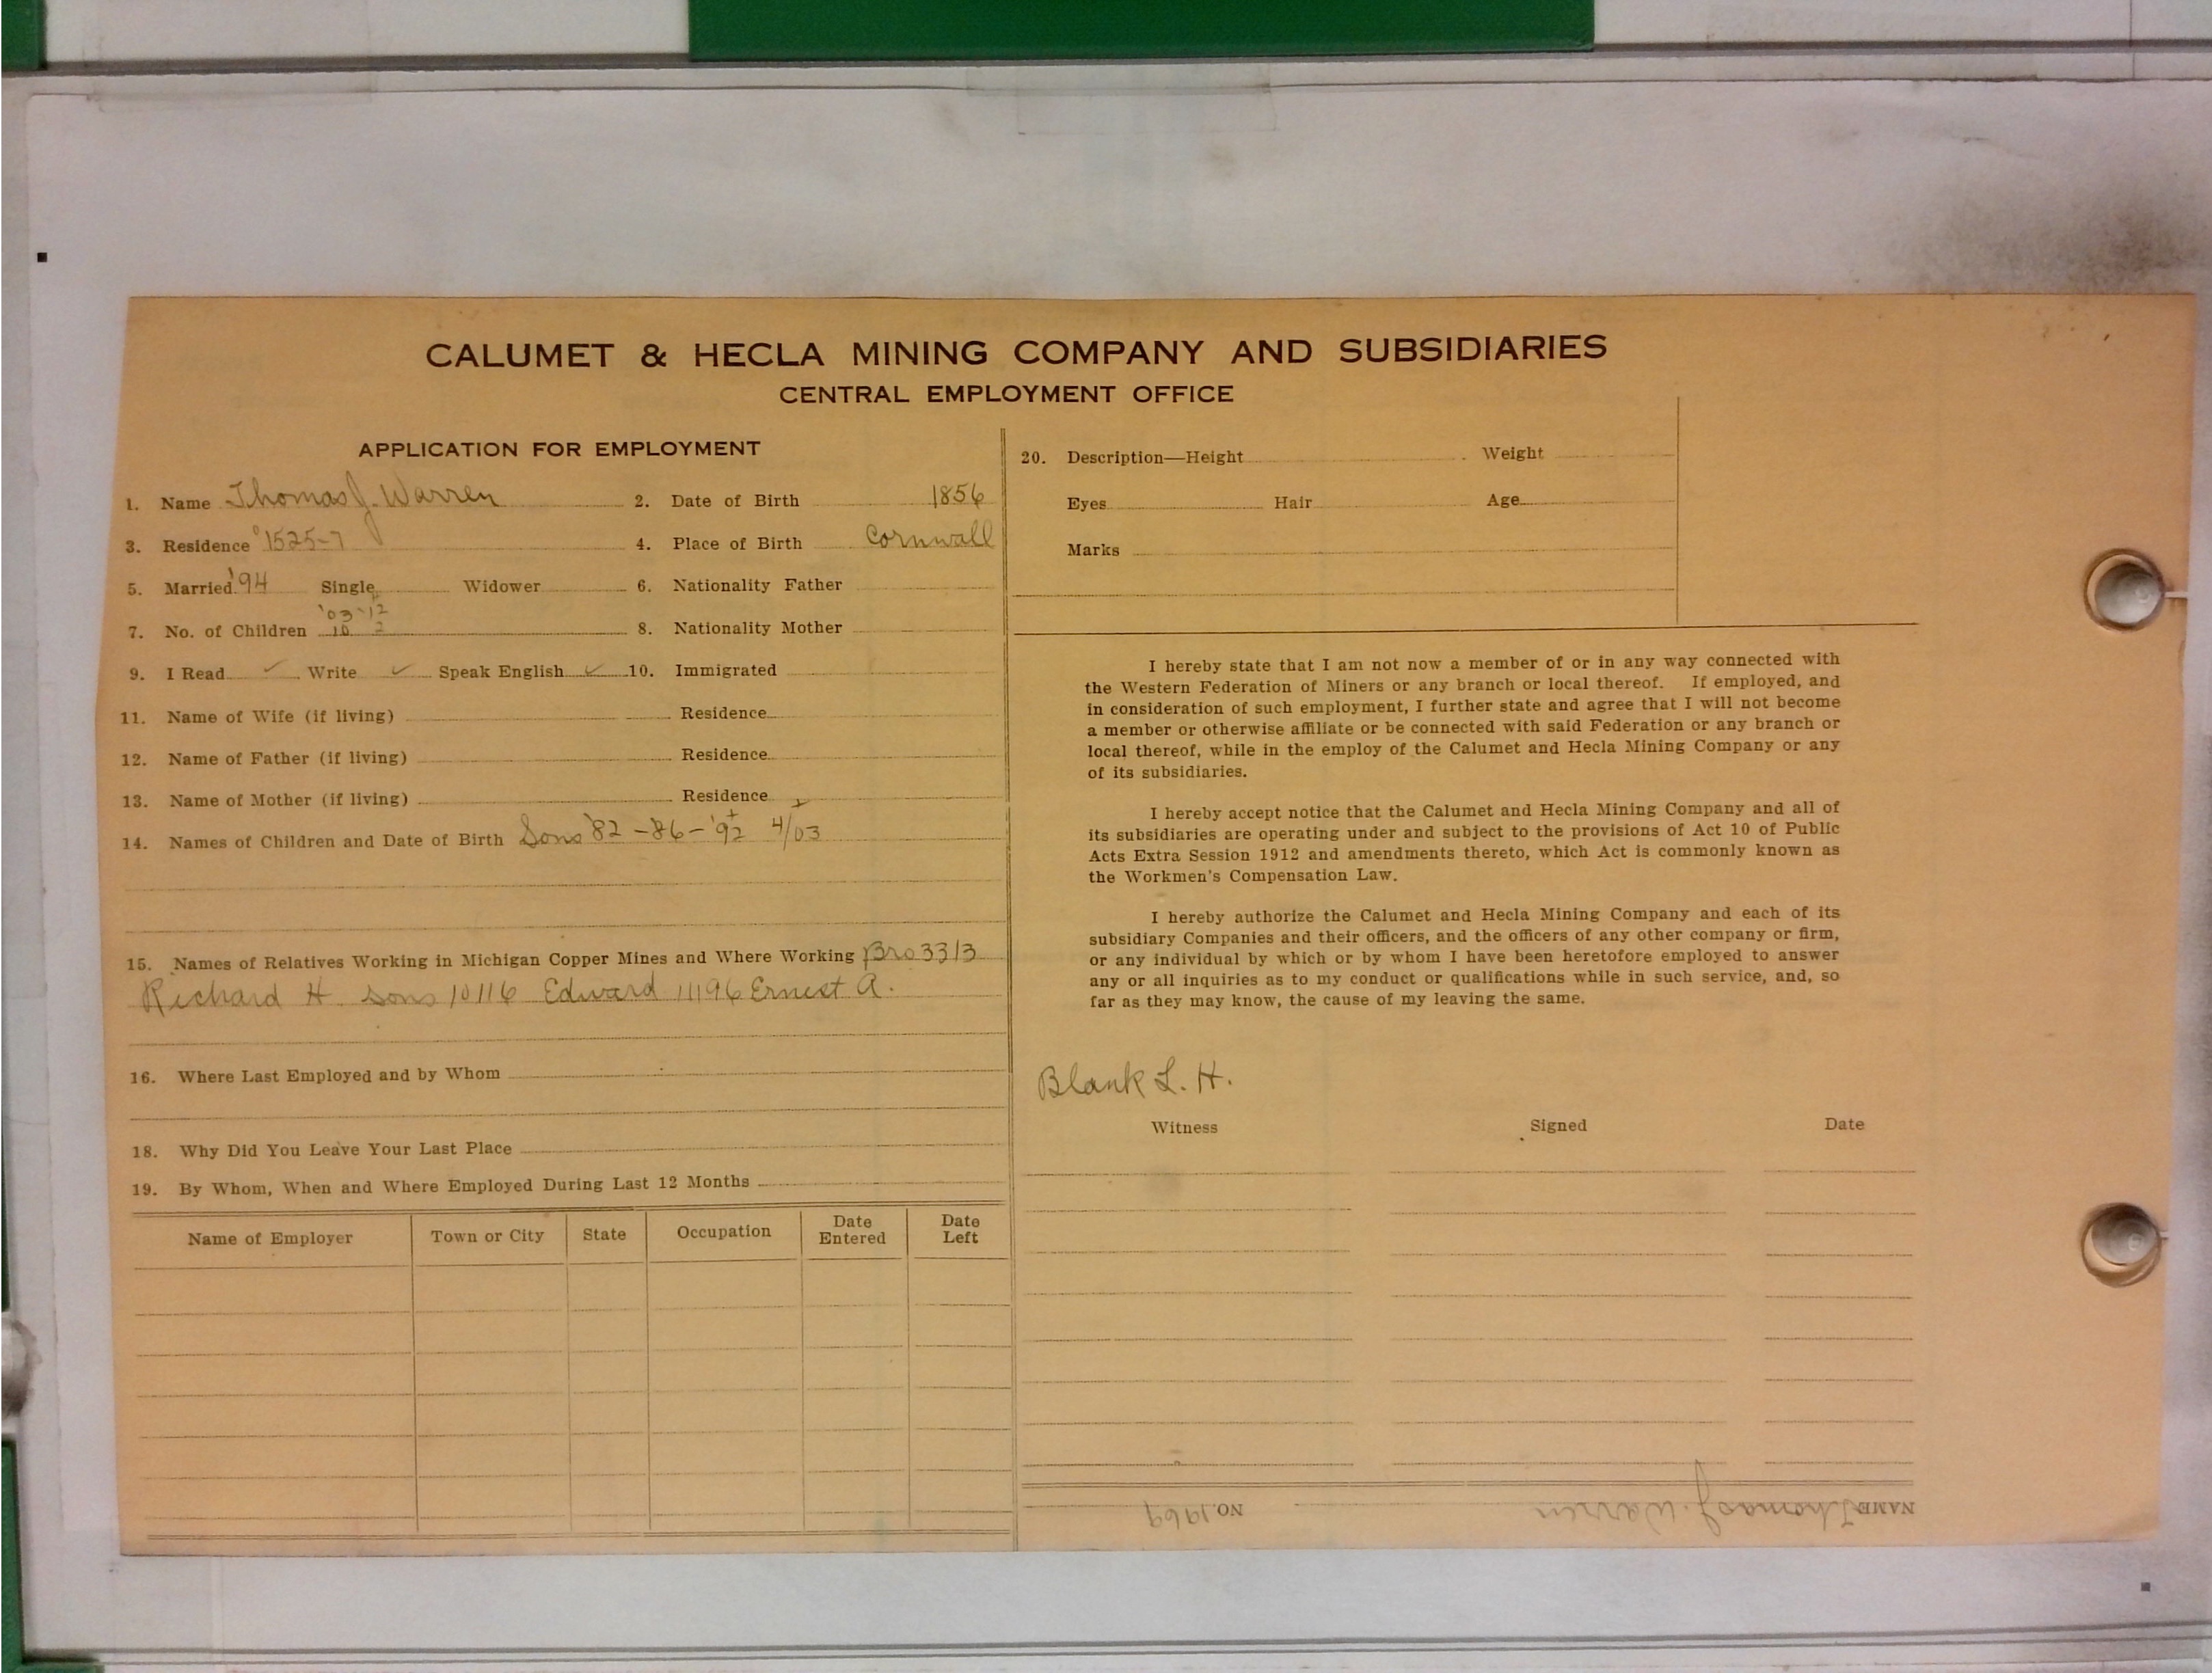 CALUMET & HECLA MINING COMPANY AND SUBSIDIARIES
CENTRAL EMPLOYMENT OFFICE
APPLICATION FOR EMPLOYMENT
1. Name Thomas J. Warren 2. Date of Birth 1856
3. Residence 1525-7 4. Place of Birth Cornwall
5. Married '94 Single Widower 6. Nationality Father
'03 '12
7. No. of Children 10 2 8. Nationality Mother
9. I Read ✓ Write ✓ Speak English ✓ 10. Immigrated
11. Name of Wife (if living) Residence
12. Name of Father (if living) Residence
13. Name of Mother (if living) Residence
14. Names of Children and Date of Birth Sons '82 - 86 - '92 4/03
15. Names of Relatives Working in Michigan Copper Mines and Where Working Bro 3313
Richard H. sons 10116 Edward 11196 Ernest A.
16. Where Last Employed and by Whom
18. Why Did You Leave Your Last Place
19. By Whom, When and Where Employed During Last 12 Months
Name of Employer Town or City State Occupation Date Entered Date Left
20. Description—Height Weight
Eyes Hair Age
Marks
I hereby state that I am not now a member of or in any way connected with
the Western Federation of Miners or any branch or local thereof. If employed, and
in consideration of such employment, I further state and agree that I will not become
a member or otherwise affiliate or be connected with said Federation or any branch or
local thereof, while in the employ of the Calumet and Hecla Mining Company or any
of its subsidiaries.
I hereby accept notice that the Calumet and Hecla Mining Company and all of
its subsidiaries are operating under and subject to the provisions of Act 10 of Public
Acts Extra Session 1912 and amendments thereto, which Act is commonly known as
the Workmen's Compensation Law.
I hereby authorize the Calumet and Hecla Mining Company and each of its
subsidiary Companies and their officers, and the officers of any other company or firm,
or any individual by which or by whom I have been heretofore employed to answer
any or all inquiries as to my conduct or qualifications while in such service, and, so
far as they may know, the cause of my leaving the same.
Blank L. H.
Witness Signed Date
NAME Thomas J. Warren NO. 1969